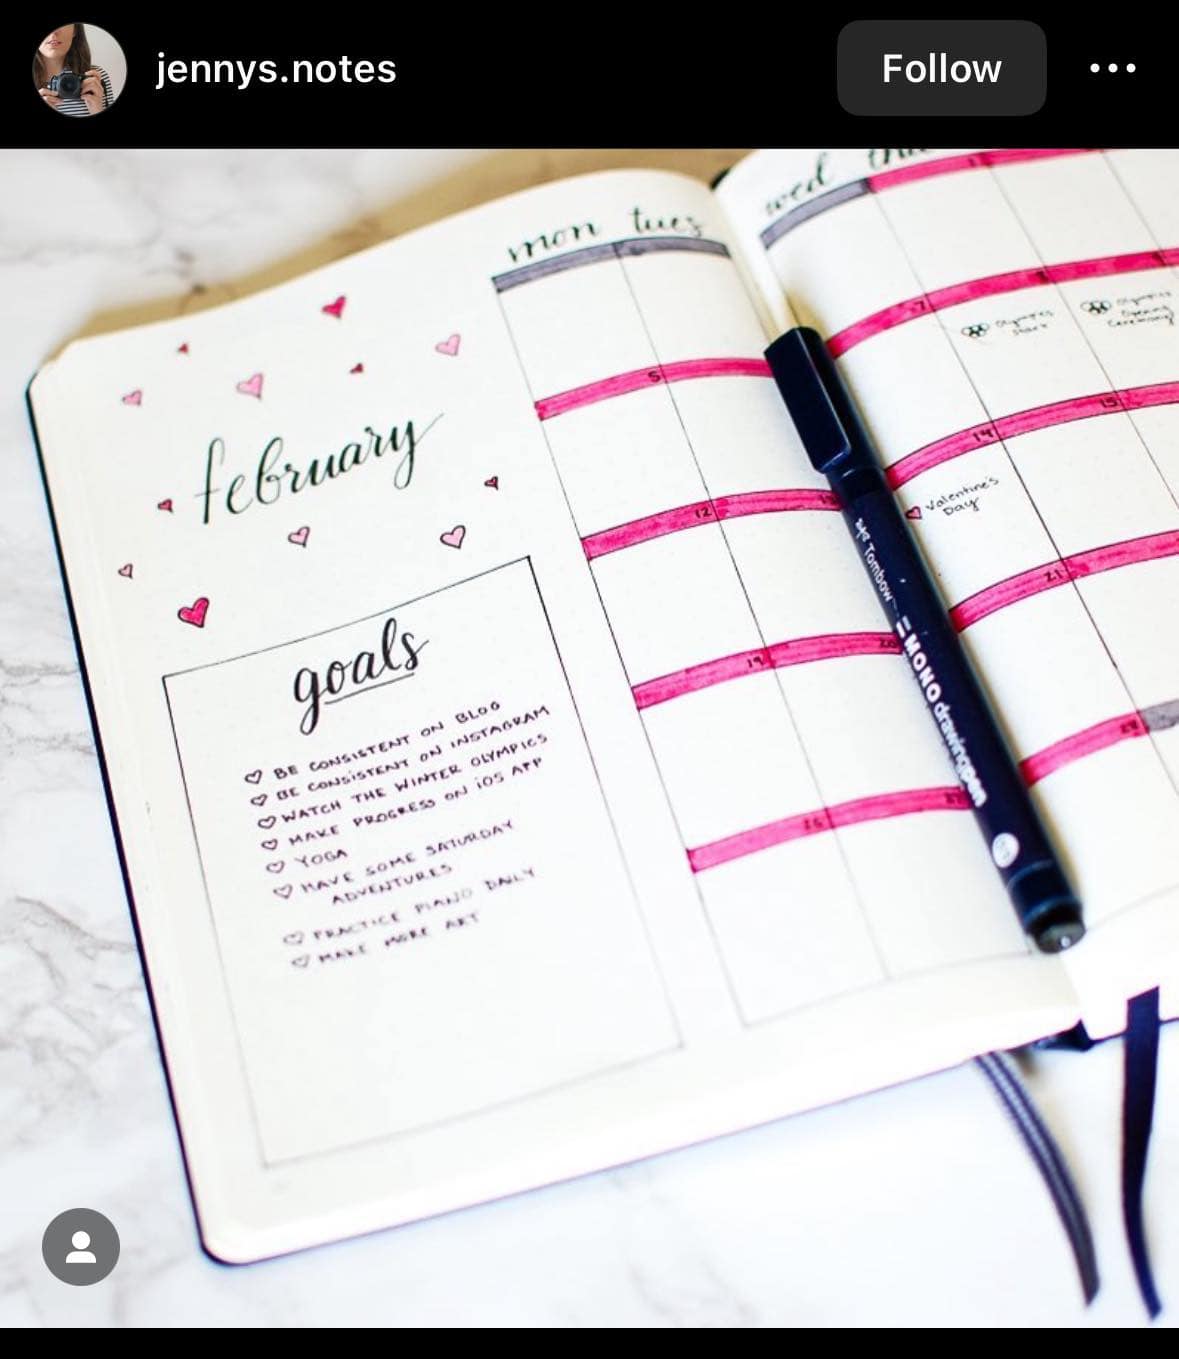 jennys.notes
Follow
february
goals
BE CONSISTENT ON BLOG
BE CONSISTENT ON INSTAGRAM
WATCH THE WINTER OLYMPICS
MAKE PROGRESS ON iOS APP
YOGA
HAVE SOME SATURDAY
ADVENTURES
PRACTICE PIANO DAILY
MAKE MORE ART
mon tues
5
12
19
26
wed thu
7
Olympics
start
Olympics
Opening
Ceremony
14
15
Valentine's
Day
21
28
Tombow
MONO drawing pen